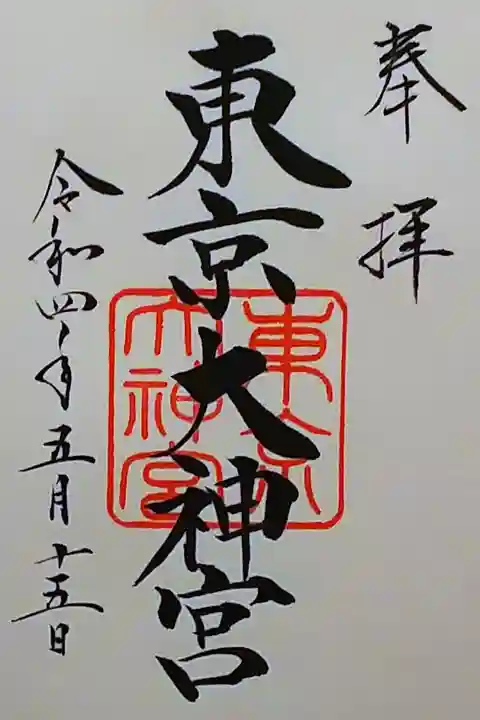 奉拝
東京大神宮
東京大神宮
令和四年五月十五日